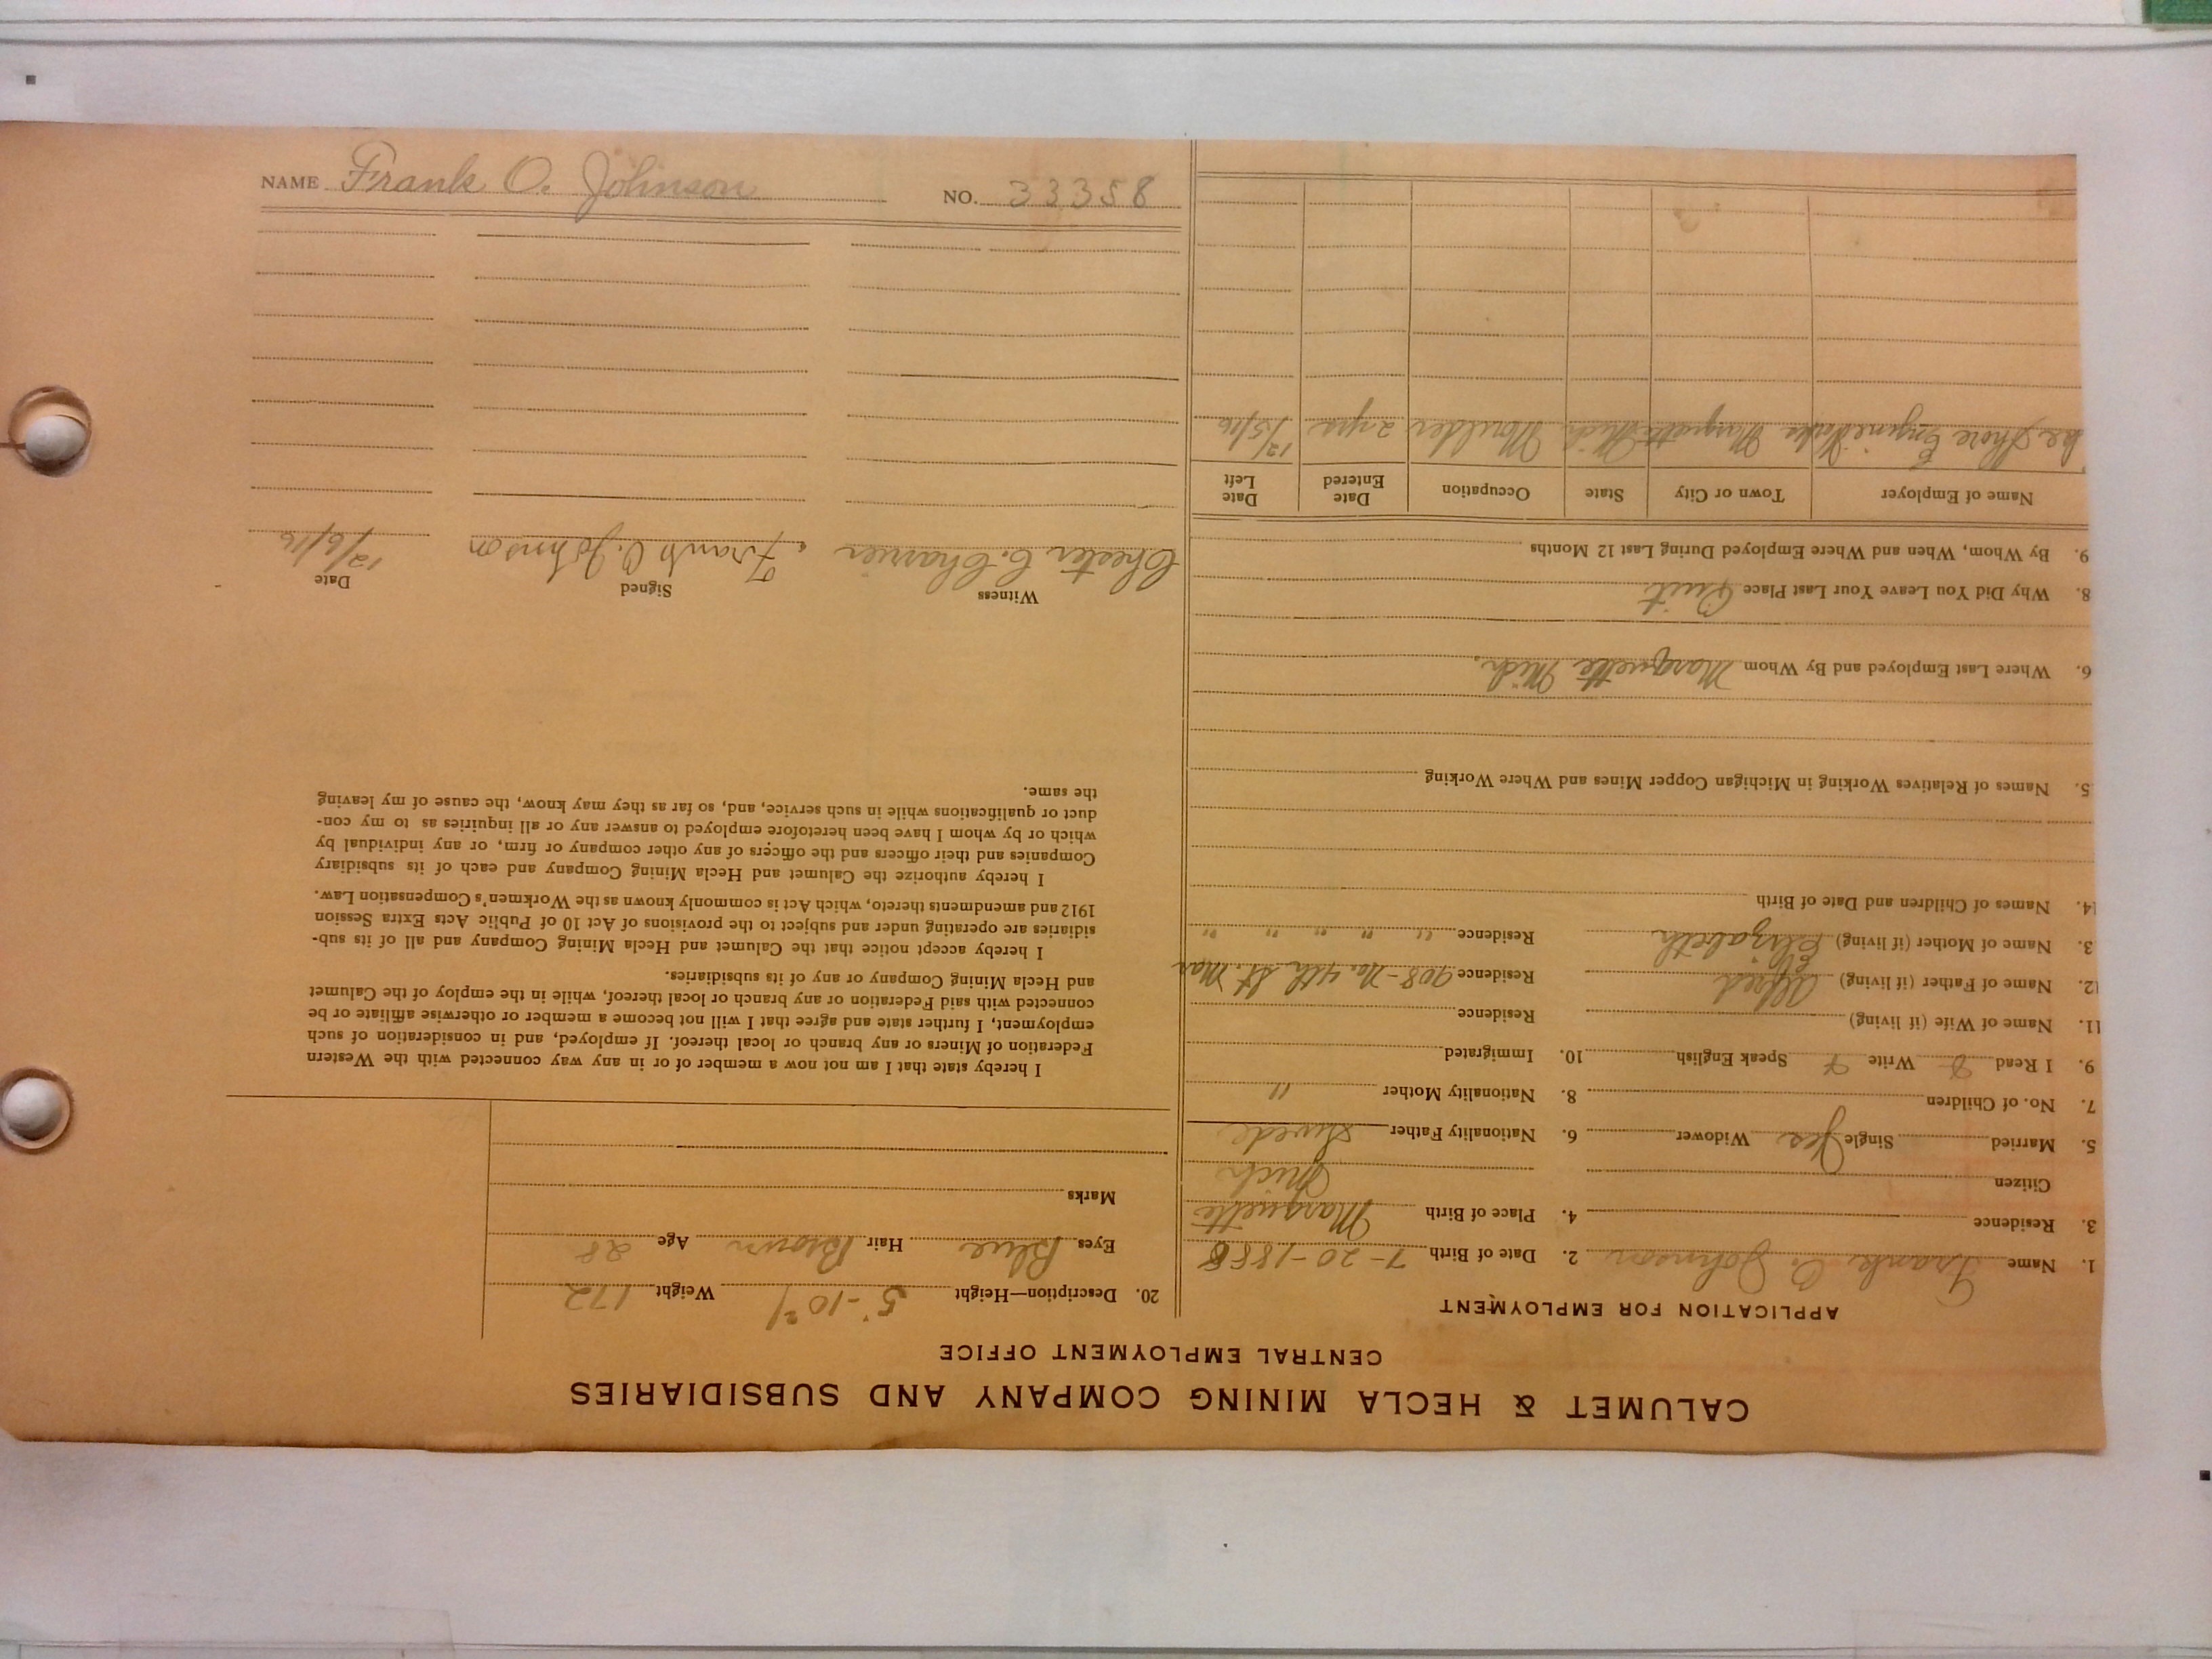 NAME Frank O. Johnson NO. 33358
CALUMET & HECLA MINING COMPANY AND SUBSIDIARIES
CENTRAL EMPLOYMENT OFFICE
APPLICATION FOR EMPLOYMENT
1. Name Frank O. Johnson 2. Date of Birth 7-20-1888
3. Residence 4. Place of Birth Marquette
Citizen Mich
5. Married Single Yes Widower 6. Nationality Father Swede
7. No. of Children 8. Nationality Mother "
9. I Read Write Speak English 10. Immigrated
11. Name of Wife (if living) Residence
2. Name of Father (if living) Alfred Residence 908-No. 4th St. Mar
3. Name of Mother (if living) Elizabeth Residence " " " " "
14. Names of Children and Date of Birth
5. Names of Relatives Working in Michigan Copper Mines and Where Working
6. Where Last Employed and By Whom Marquette Mich.
8. Why Did You Leave Your Last Place Quit
9. By Whom, When and Where Employed During Last 12 Months
Name of Employer Town or City State Occupation Date Entered Date Left
ke Shore Engine Works Marquette Mich Moulder 2 yrs 12/5/16
20. Description—Height 5'-10 Weight 172
Eyes Blue Hair Brown Age 28
Marks
I hereby state that I am not now a member of or in any way connected with the Western
Federation of Miners or any branch or local thereof. If employed, and in consideration of such
employment, I further state and agree that I will not become a member or otherwise affiliate or be
connected with said Federation or any branch or local thereof, while in the employ of the Calumet
and Hecla Mining Company or any of its subsidiaries.
I hereby accept notice that the Calumet and Hecla Mining Company and all of its sub-
sidiaries are operating under and subject to the provisions of Act 10 of Public Acts Extra Session
1912 and amendments thereto, which Act is commonly known as the Workmen's Compensation Law.
I hereby authorize the Calumet and Hecla Mining Company and each of its subsidiary
Companies and their officers and the officers of any other company or firm, or any individual by
which or by whom I have been heretofore employed to answer any or all inquiries as to my con-
duct or qualifications while in such service, and, so far as they may know, the cause of my leaving
the same.
Witness Signed Date
Chester C. Frank O. Johnson 12/6/16